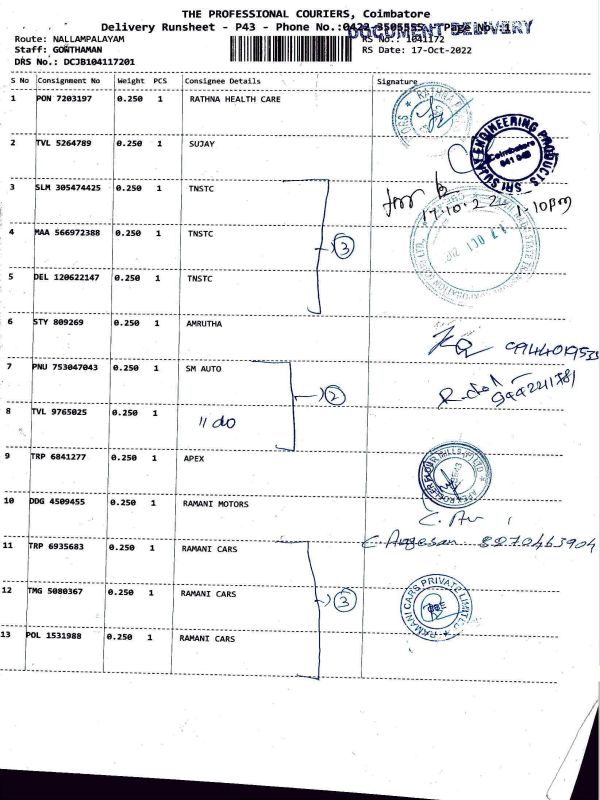 THE PROFESSIONAL COURIERS, Coimbatore
Delivery Runsheet - P43 - Phone No.:0422-3505555 - Page No. 1
DOCUMENT DELIVERY
Route: NALLAMPALAYAM RS No.: 1041172
Staff: GOWTHAMAN RS Date: 17-Oct-2022
DRS No.: DCJB104117201
S No Consignment No Weight PCS Consignee Details Signature
1 PON 7203197 0.250 1 RATHNA HEALTH CARE
RATHNA
2 TVL 5264789 0.250 1 SUJAY
SRI SUJAY ENGINEERING PRODUCTS
Coimbatore
641 048
3 SLM 305474425 0.250 1 TNSTC
17.10.22 1.10pm
4 MAA 566972388 0.250 1 TNSTC
3
17 OCT
5 DEL 120622147 0.250 1 TNSTC
6 STY 809269 0.250 1 AMRUTHA
7 PNU 753047043 0.250 1 SM AUTO
2
8 TVL 9765025 0.250 1 11 do
9 TRP 6841277 0.250 1 APEX
APEX ROLLER FLOUR MILLS (P) LTD
10 DDG 4509455 0.250 1 RAMANI MOTORS
11 TRP 6935683 0.250 1 RAMANI CARS
8270463904
12 TMG 5080367 0.250 1 RAMANI CARS
3
RAMANI CARS PRIVATE LIMITED
CBE
13 POL 1531988 0.250 1 RAMANI CARS